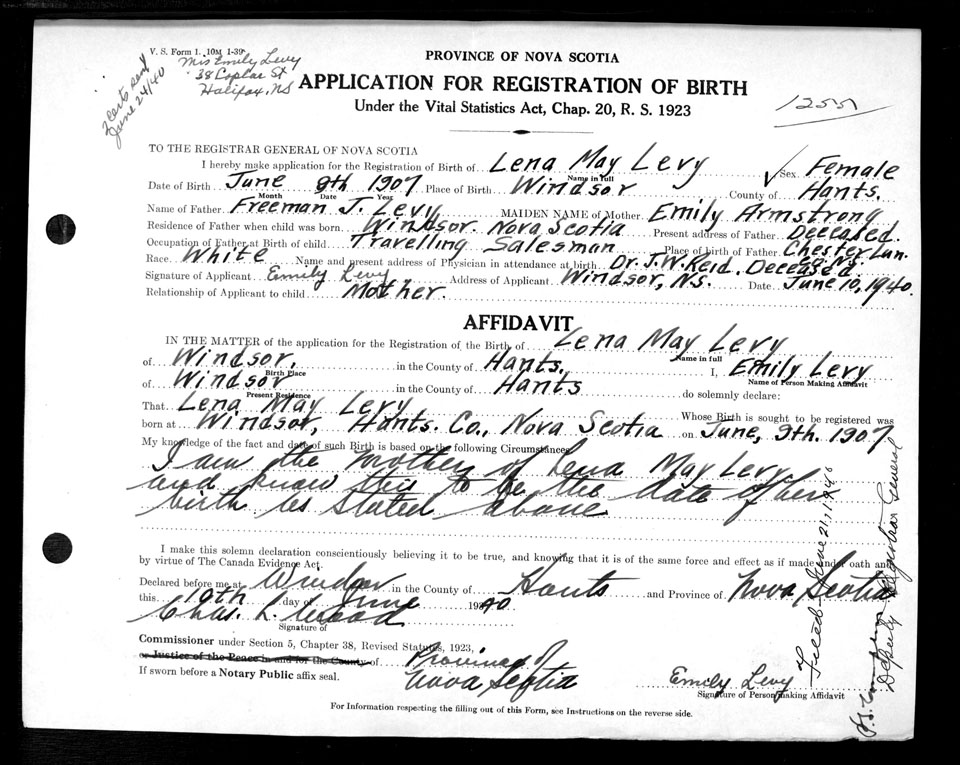 V. S. Form 1. 10M 1-39
Mrs Emily Levy
38 St
Halifax, NS
2 Certs sent
June 24/40
PROVINCE OF NOVA SCOTIA
APPLICATION FOR REGISTRATION OF BIRTH
Under the Vital Statistics Act, Chap. 20, R. S. 1923
TO THE REGISTRAR GENERAL OF NOVA SCOTIA
I hereby make application for the Registration of Birth of Lena May Levy Sex Female
Name in full
Date of Birth June 9th 1907 Place of Birth Windsor County of Hants.
Month Date Year
Name of Father Freeman J. Levy MAIDEN NAME of Mother Emily Armstrong
Residence of Father when child was born Windsor. Nova Scotia Present address of Father Deceased.
Occupation of Father at Birth of child Travelling Salesman Place of birth of Father Chester Lun. Co. N.S.
Race. White Name and present address of Physician in attendance at birth Dr. J. W. Reid. Deceased
Signature of Applicant Emily Levy Address of Applicant Windsor, N.S. Date June 10, 1940.
Relationship of Applicant to child Mother.
AFFIDAVIT
IN THE MATTER of the application for the Registration of the Birth of Lena May Levy
Name in full
of Windsor, in the County of Hants, I, Emily Levy
Birth Place Name of Person Making Affidavit
of Windsor in the County of Hants do solemnly declare:
Present Residence
That Lena May Levy Whose Birth is sought to be registered was
born at Windsor, Hants. Co., Nova Scotia on June, 9th. 1907
My knowledge of the fact and date of such Birth is based on the following Circumstances
I am the mother of Lena May Levy
and know this to be the date of her
birth as stated above
I make this solemn declaration conscientiously believing it to be true, and knowing that it is of the same force and effect as if made under oath and
by virtue of The Canada Evidence Act.
Declared before me at Windsor in the County of Hants and Province of Nova Scotia
this 10th day of June 1940
Chas. L. Wood
Signature of
Commissioner under Section 5, Chapter 38, Revised Statutes, 1923,
or Justice of the Peace in and for the County of Province of
If sworn before a Notary Public affix seal. Nova Scotia
Emily Levy
Signature of Person making Affidavit
For Information respecting the filling out of this Form, see Instructions on the reverse side.
Filed June 21, 1940
Deputy Registrar General